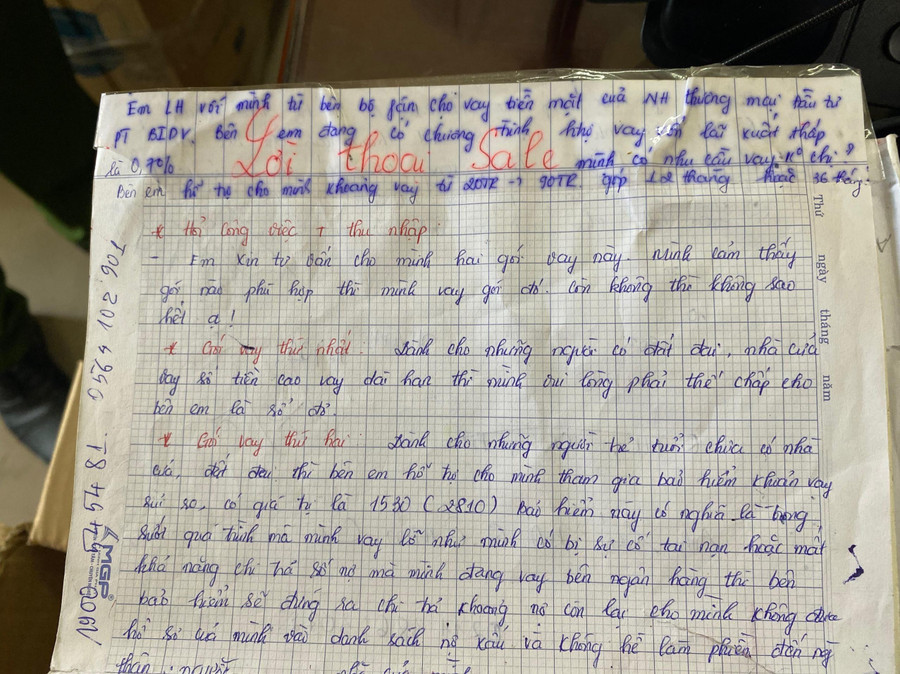 Em LH với mình từ bên bộ phận cho vay tiền mặt của NH thương mại đầu tư
PT BIDV. Bên em đang có chương trình hỗ trợ vay vốn lãi xuất thấp
Lời thoại Sale
là 0,7% mình có nhu cầu vay kº chị?
Bên em hỗ trợ cho mình khoảng vay từ 20TR → 90TR góp 12 tháng hoặc 36 tháng!
* Hỏi công việc + thu nhập:
- Em xin tư vấn cho mình hai gói vay này. Mình cảm thấy
gói nào phù hợp thì mình vay gói đó. Còn không thì không sao
hết ạ!
* Gói vay thứ nhất: Dành cho những người có đất đai, nhà cửa
vay số tiền cao vay dài hạn thì mình vui lòng phải thế chấp cho
bên em là sổ đỏ.
* Gói vay thứ hai: Dành cho những người trẻ tuổi chưa có nhà
cửa, đất đai thì bên em hỗ trợ cho mình tham gia bảo hiểm khoản vay
rủi ro, có giá trị là 1530 (2810) Bảo hiểm này có nghĩa là trong
suốt quá trình mà mình vay lỡ như mình có bị sự cố tai nạn hoặc mất
khả năng chi trả số nợ mà mình đang vay bên ngân hàng thì bên
bảo hiểm sẽ đứng ra chi trả khoảng nợ còn lại cho mình không đưa
hồ sơ của mình vào danh sách nợ xấu và không hề làm phiền đến ng
thân, người
Thứ ngày tháng năm
0569 102 901
1900 5454 81
MGP